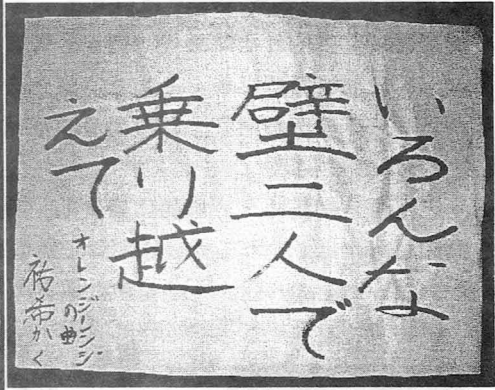 いろんな
壁二人で
乗り越
えて
オレンジーンジ
の曲
祐希かく